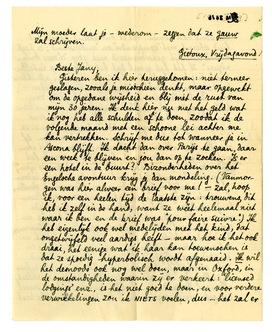 Mijn moeder laat je - wederom - zeggen dat ze gauw
zal schrijven.
Gistoux, Vrijdagavond.
Beste Jany,
Gisteren ben ik hier teruggekomen: niet terneer-
geslagen, zooals je misschien denkt, maar opgewekt
om de opgedane wijsheid en blij met de rust van
mijn 30 jaren. Ik denk hier nu met het geld wat
ik nog heb alle schulden af te doen, zoodat ik de
volgende maand met een schoone lei achter me
kan vertrekken. Schrijf me dus tot wanneer je in
Ascona blijft. Ik dacht dan over Parijs te gaan, daar
een week te blijven en jou dan op te zoeken. Is er
een hotel in de buurt? Bizonderheden over het
Engelsche avontuur krijg je dan mondeling. (Van mor-
gen was hier alweer een brief voor me! - zal hoop
ik, voor een heelen tijd de laatste zijn: trouwens, dit
het ik zelf in de hand, want ze wist heelemaal niet
waar ik ben en de brief was "pour faire suivre".) Ik
heb eigenlijk ook wel medelijden met het kind, dat
ongetwijfeld veel aardigs heeft - maar hoe ik het ook
draai, het eenige wat ik haar kan toewenschen is
dat ze spoedig hyperbolisch wordt afgemaakt. Ik wil
het desnoods ook nog wel doen, maar in Oxford, in
de omstandigheden waarin zij er verkeert: licensed
lodgings enz., is het niet goed te doen, en voor verdere
verwikkelingen zou ik NIETS voelen, dus - het zal er